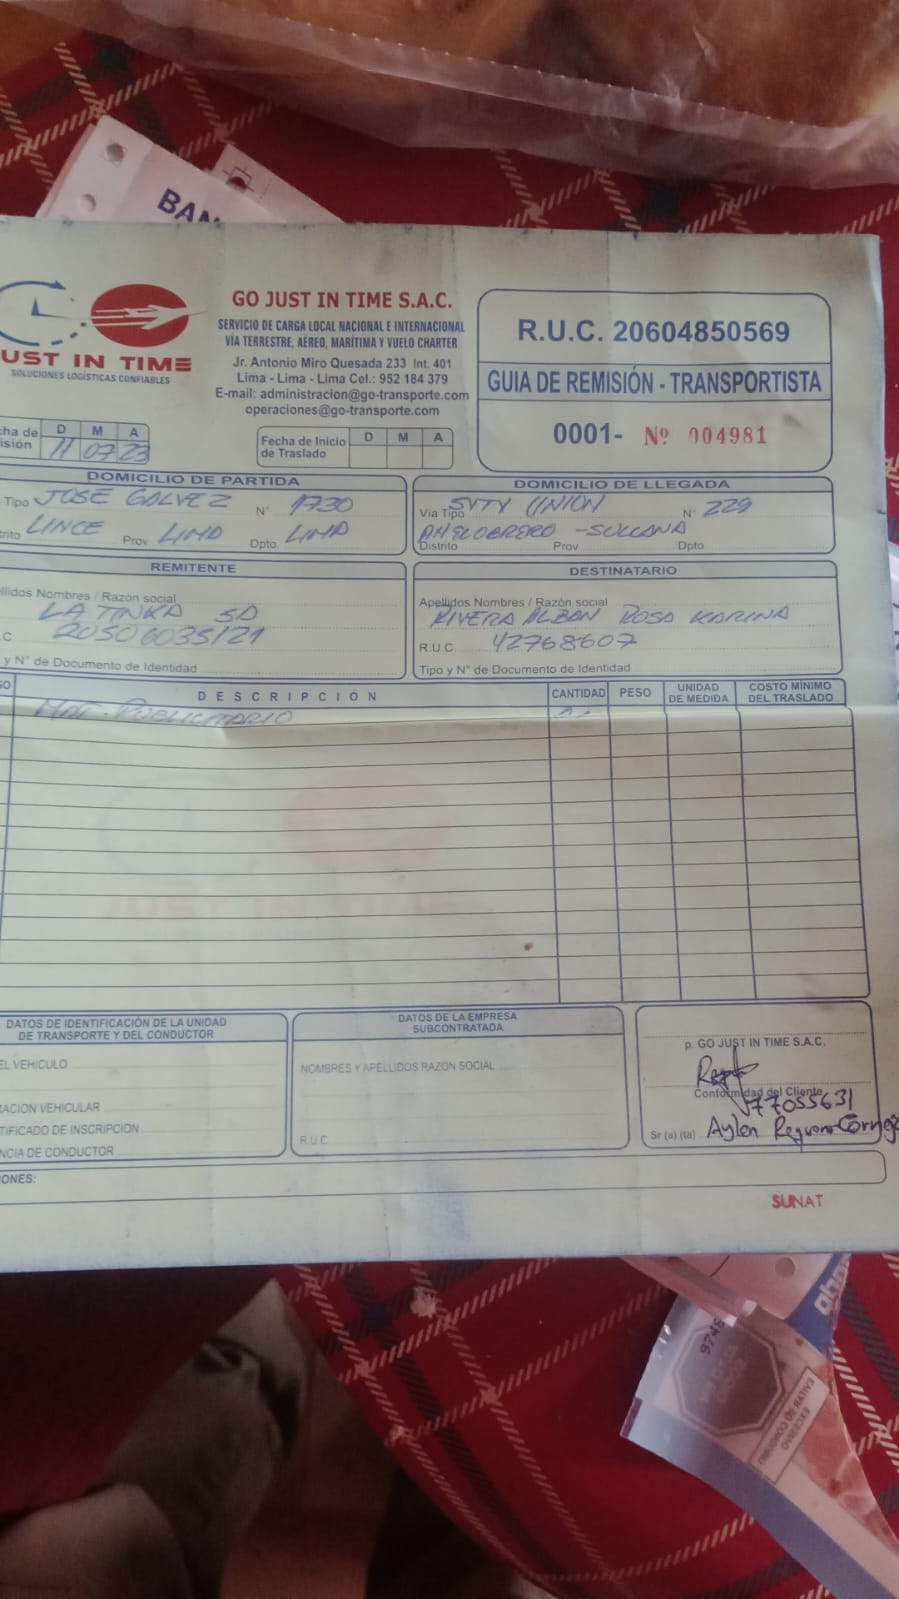 BAN
JUST IN TIME
SOLUCIONES LOGÍSTICAS CONFIABLES
GO JUST IN TIME S.A.C.
SERVICIO DE CARGA LOCAL NACIONAL E INTERNACIONAL
VÍA TERRESTRE, AÉREO, MARÍTIMA Y VUELO CHARTER
Jr. Antonio Miro Quesada 233 Int. 401
Lima - Lima - Lima Cel.: 952 184 379
E-mail: administracion@go-transporte.com
operaciones@go-transporte.com
R.U.C. 20604850569
GUIA DE REMISIÓN - TRANSPORTISTA
0001- Nº 004981
cha de isión D M A
11 07 23
Fecha de Inicio de Traslado D M A
DOMICILIO DE PARTIDA
Tipo JOSE GALVEZ N° 1730
trito LINCE Prov LIMA Dpto LIMA
DOMICILIO DE LLEGADA
Via Tipo UNION N° 229
OBRERO - SULLANA
Distrito Prov Dpto
REMITENTE
ellidos Nombres / Razón social
LA TINKA SA
C 20506035121
y N° de Documento de Identidad
DESTINATARIO
Apellidos Nombres / Razón social
RIVERA ALBAN ROSA KARINA
R.U.C 42768607
Tipo y N° de Documento de Identidad
GO DESCRIPCIÓN CANTIDAD PESO UNIDAD DE MEDIDA COSTO MÍNIMO DEL TRASLADO
MAT. PUBLICITARIO
JUST IN TIME
DATOS DE IDENTIFICACIÓN DE LA UNIDAD
DE TRANSPORTE Y DEL CONDUCTOR
EL VEHICULO
RACION VEHICULAR
TIFICADO DE INSCRIPCION
NCIA DE CONDUCTOR
DATOS DE LA EMPRESA
SUBCONTRATADA
NOMBRES Y APELLIDOS RAZON SOCIAL
R.U.C
p. GO JUST IN TIME S.A.C.
Conformidad del Cliente
77055631
Sr (a) (ta) Aylen Cornejo
IONES:
SUNAT
9748